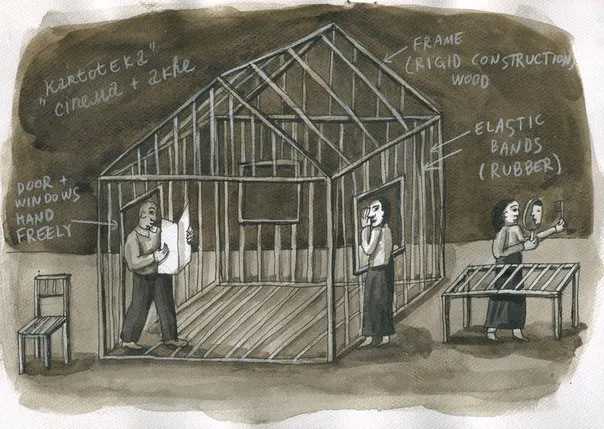 "Kartoteka"
cinema + akhe
FRAME
(RIGID CONSTRUCTION)
WOOD
ELASTIC
BANDS
(RUBBER)
DOOR +
WINDOWS
HAND
FREELY